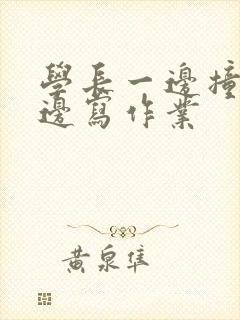 學長一邊撞
邊寫作業
黃泉隼